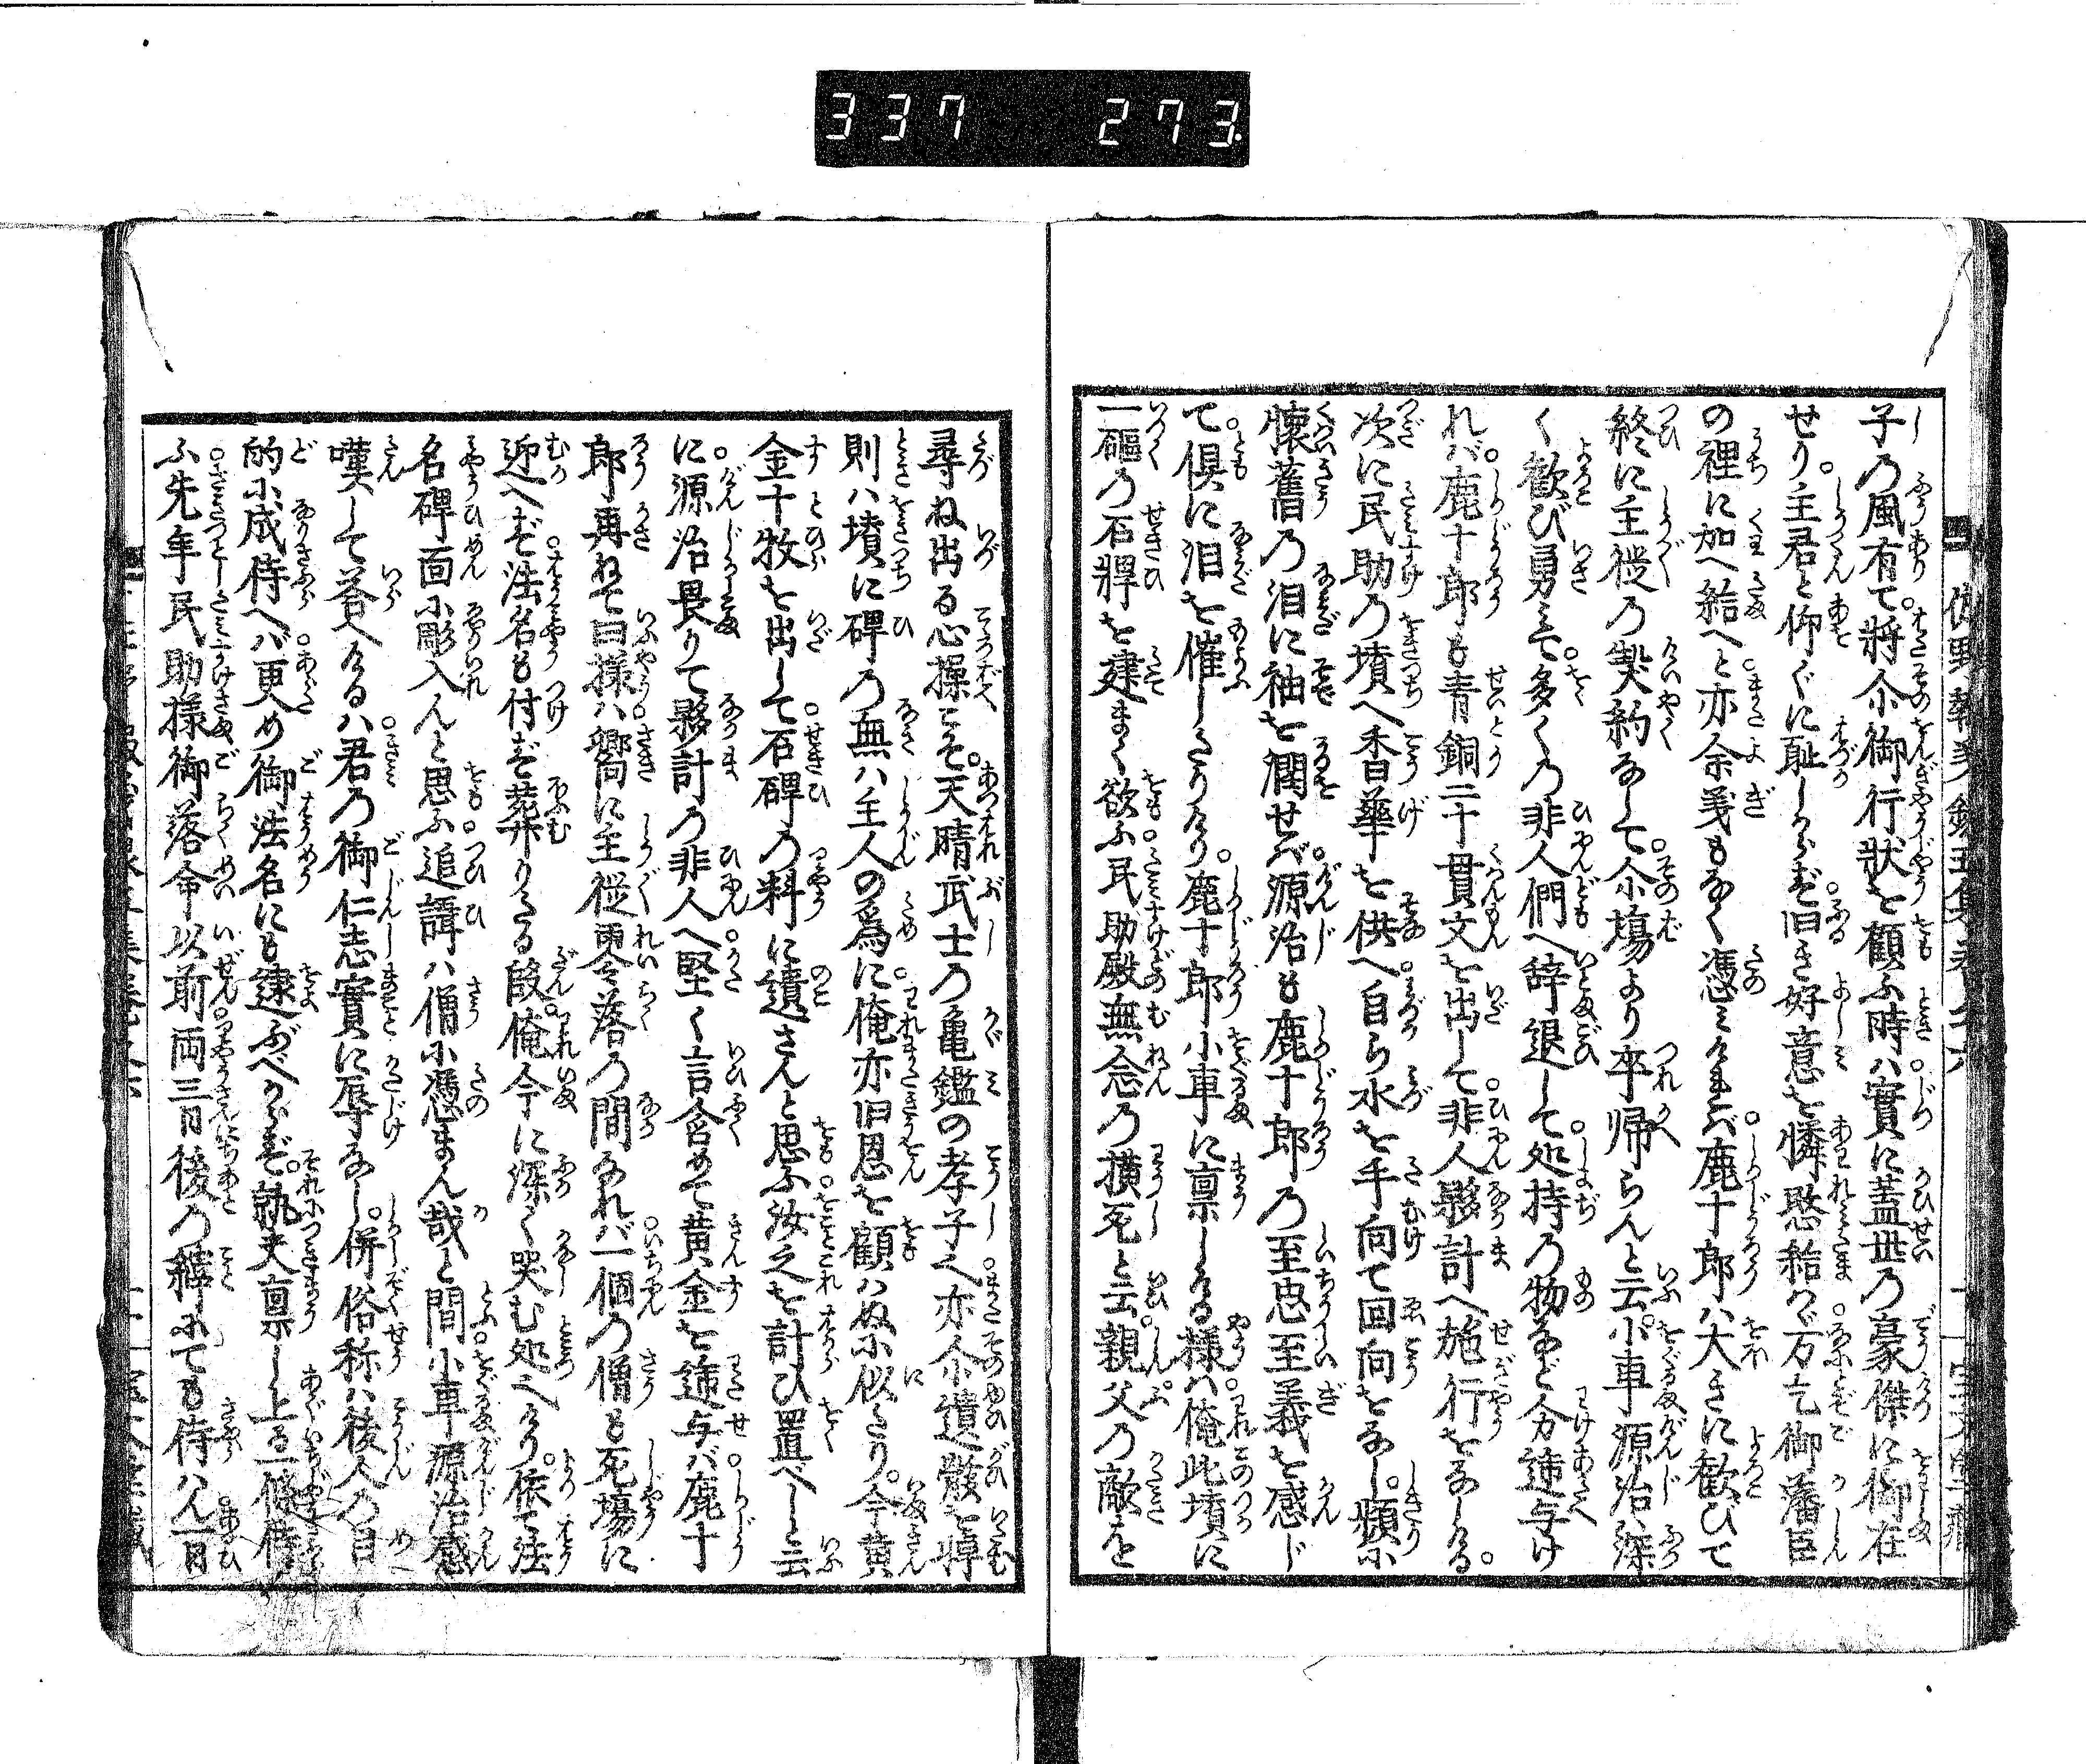 337 273
子乃風有て将尓御行状を顧ふ時ハ實に蓋世乃豪傑に御在
せり。主君と仰ぐに恥しからず。旧き好意を憐愍給ハゞ万乞御藩臣
の裡に加へ給へと亦余義もなく憑ミければ。鹿十郎ハ大きに歓びて
終に主従乃契約なして。尓場より卒帰らんと云。小車源治深
く歓び勇ミて。多く乃非人們へ辞退して。処持乃物など分遣与け
れバ。鹿十郎も青銅二十貫文を出して。非人夥計へ施行をなしける。
次に民助乃墳へ香華を供へ。自ら水を手向て回向をなし。頻ふ
懐舊乃泪に袖を潤せバ。源治も鹿十郎乃至忠至義を感じ
て。倶に泪を催しさりけり。鹿十郎小車に禀しける様ハ。俺此墳に
一礀乃石碑を建まく欲ふ。民助殿無念乃横死と云。親父乃敵を
尋ね出る心操こそ。天晴武士乃亀鑑の孝子。亦尓遺骸を埻
則ハ墳に碑乃無ハ主人の為に。俺亦旧恩を顧ハぬふ似さり。今黄
金十枚を出して。石碑乃料に遺さんと思ふ。汝之を計ひ置べしと云
に。源治畏りて夥計乃非人へ。堅く言含めて黄金を遣与バ。鹿十
郎再ねて曰様ハ。嚮に主従零落乃間なれバ。一個乃僧も死場に
迎へず。法名も付ず葬りさる段。俺今に深く哭む処之けり。依て法
名碑面ふ彫入んと思ふ。追諱ハ僧ふ憑まん哉と問。小車源治感
嘆して答へけるハ。君乃御仁志實に辱なし。併俗称ハ後人乃目
的ふ成侍へバ。更め御法名にも逮ぶべからず。孰夫禀し上る一條侍
ふ。先年民助様御落命以前。両三日後乃縡ふても侍ハん。一日